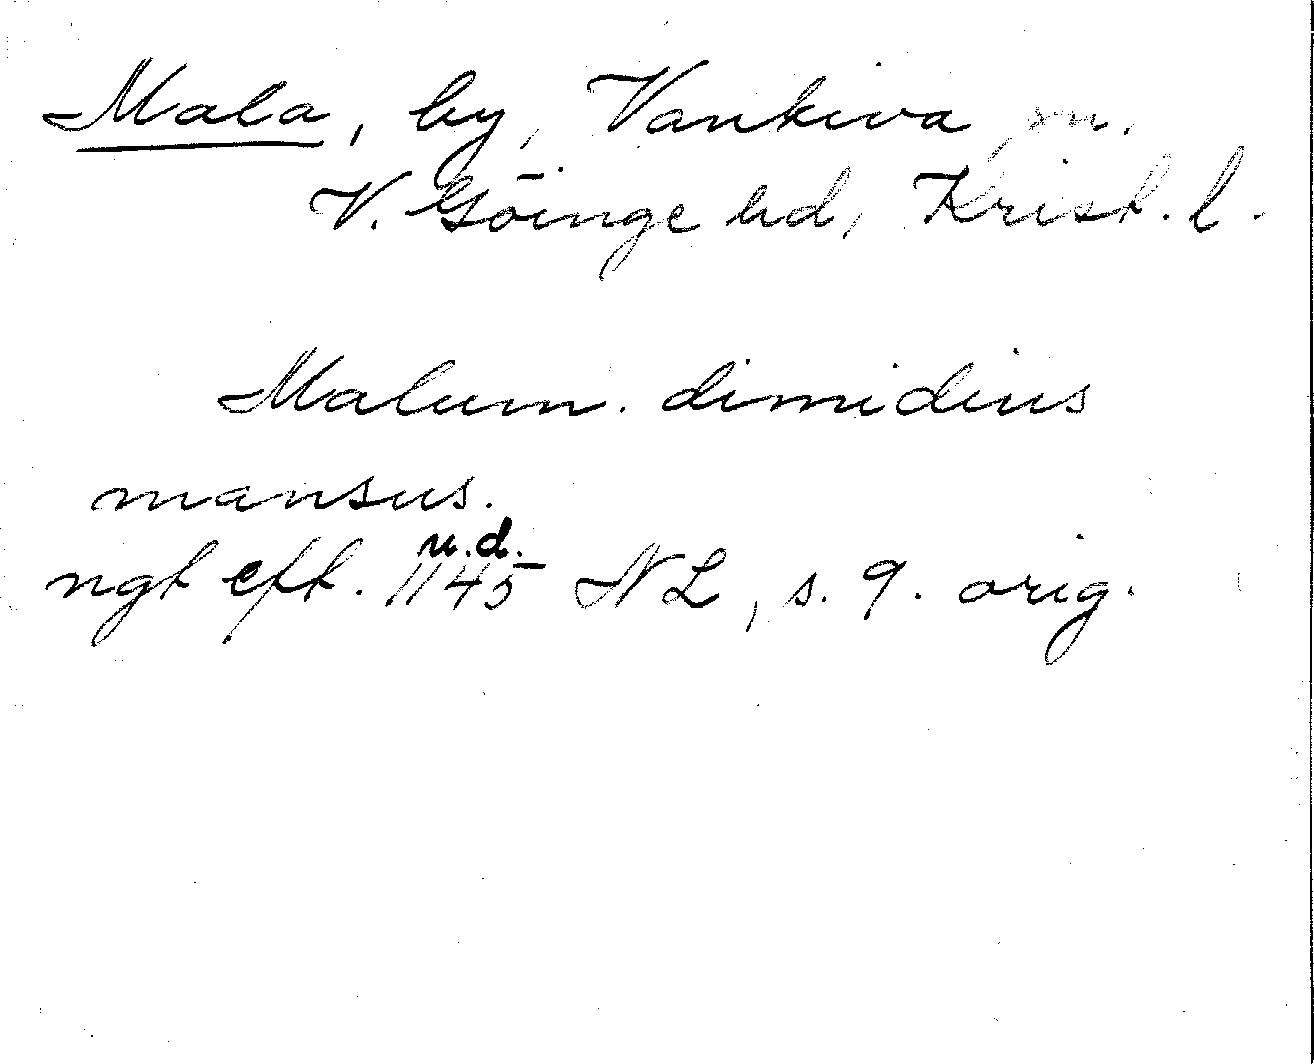 Mala, by, Vankiva sn.
V. Göinge hd, Krist. l.
Malum. dimidius
mansus.
u.d.
ngt eft. 1145 NL, s. 9. orig.